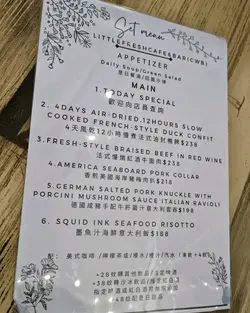 Set menu
LITTLEFRESHCAFE&BAR(CWB)
APPETIZER
Daily Soup/Green Salad
是日餐湯/田園沙律
MAIN
1. TODAY SPECIAL
歡迎向店員查詢
2. 4DAYS AIR-DRIED,12HOURS SLOW
COOKED FRENCH-STYLE DUCK CONFIT
4天風乾12小時慢煮法式油封鴨髀$238
3. FRESH-STYLE BRAISED BEEF IN RED WINE
法式慢燉紅酒牛面肉$238
4. AMERICA SEABOARD PORK COLLAR
香煎美國海岸豬梅肉扒$218
5. GERMAN SALTED PORK KNUCKLE WITH
PORCINI MUSHROOM SAUCE ITALIAN RAVIOLI
德國咸豬手配牛肝菌汁意大利雲吞$198
6. SQUID INK SEAFOOD RISOTTO
墨魚汁海鮮意大利飯$188
配: 美式咖啡 /檸檬茶或/檸水/檸汁/汽水 (凍飲+4蚊)
+28蚊轉其他飲品/
+38蚊轉沙冰飲品/
+48蚊配是日甜品